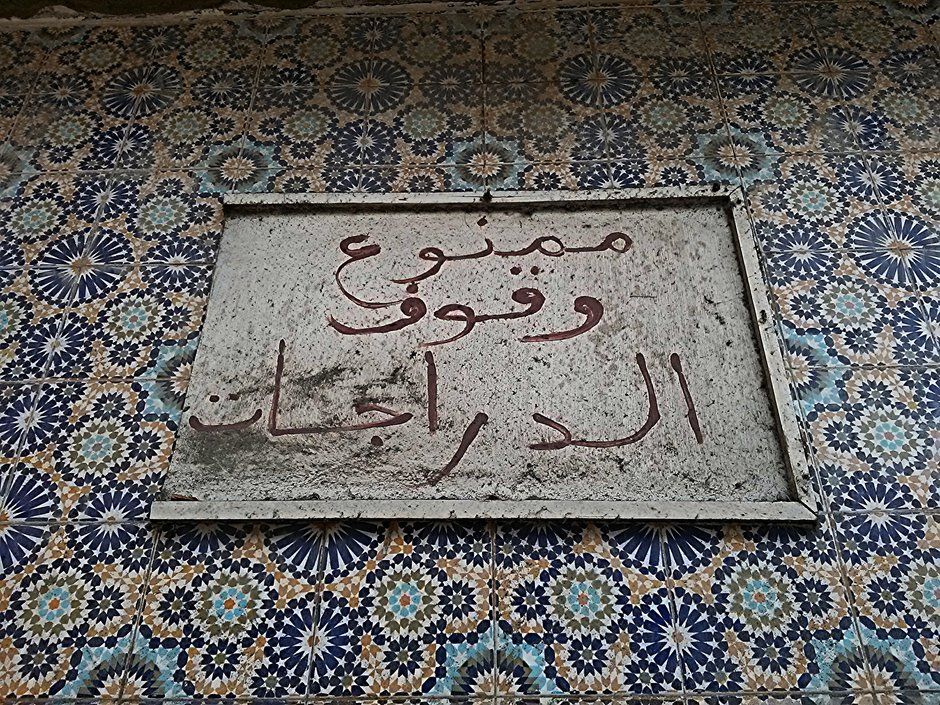 ممنوع
وقوف
الدراجات